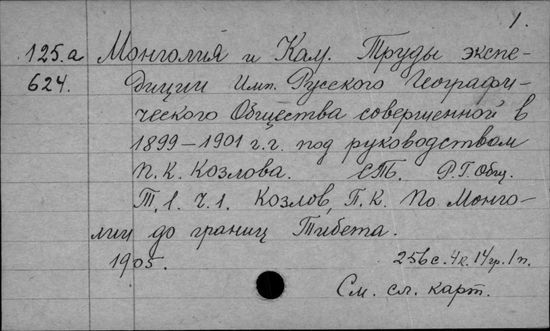 1.
125.а Монголия и Кам. Труды экспе-
624. диции Имп. Русского Географи-
ческого Общества совершенной в
1899–1901 г.г. под руководством
П. К. Козлова. СПб. Р.Г.Общ.
Т. 1. Ч. 1. Козлов, П. К. По Монго-
лии до границ Тибета.
1905. 256с. 4к. 14гр. 1п.
См. сл. карт.